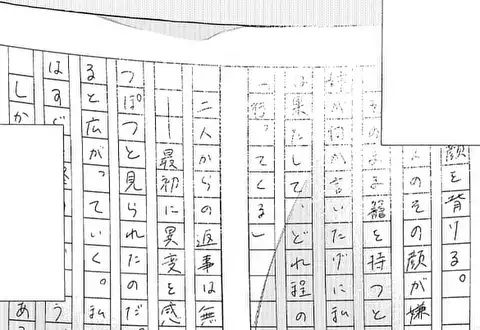 顔を背ける。
のその顔が嫌
そのまま籠を持つと
姉が何か言いたげに私
は果たして、どれ程の
「行ってくる」
二人からの返事は無
――最初に異変を感
つぽつと見られたのだ
ると広がっていく。私
はすで
しか